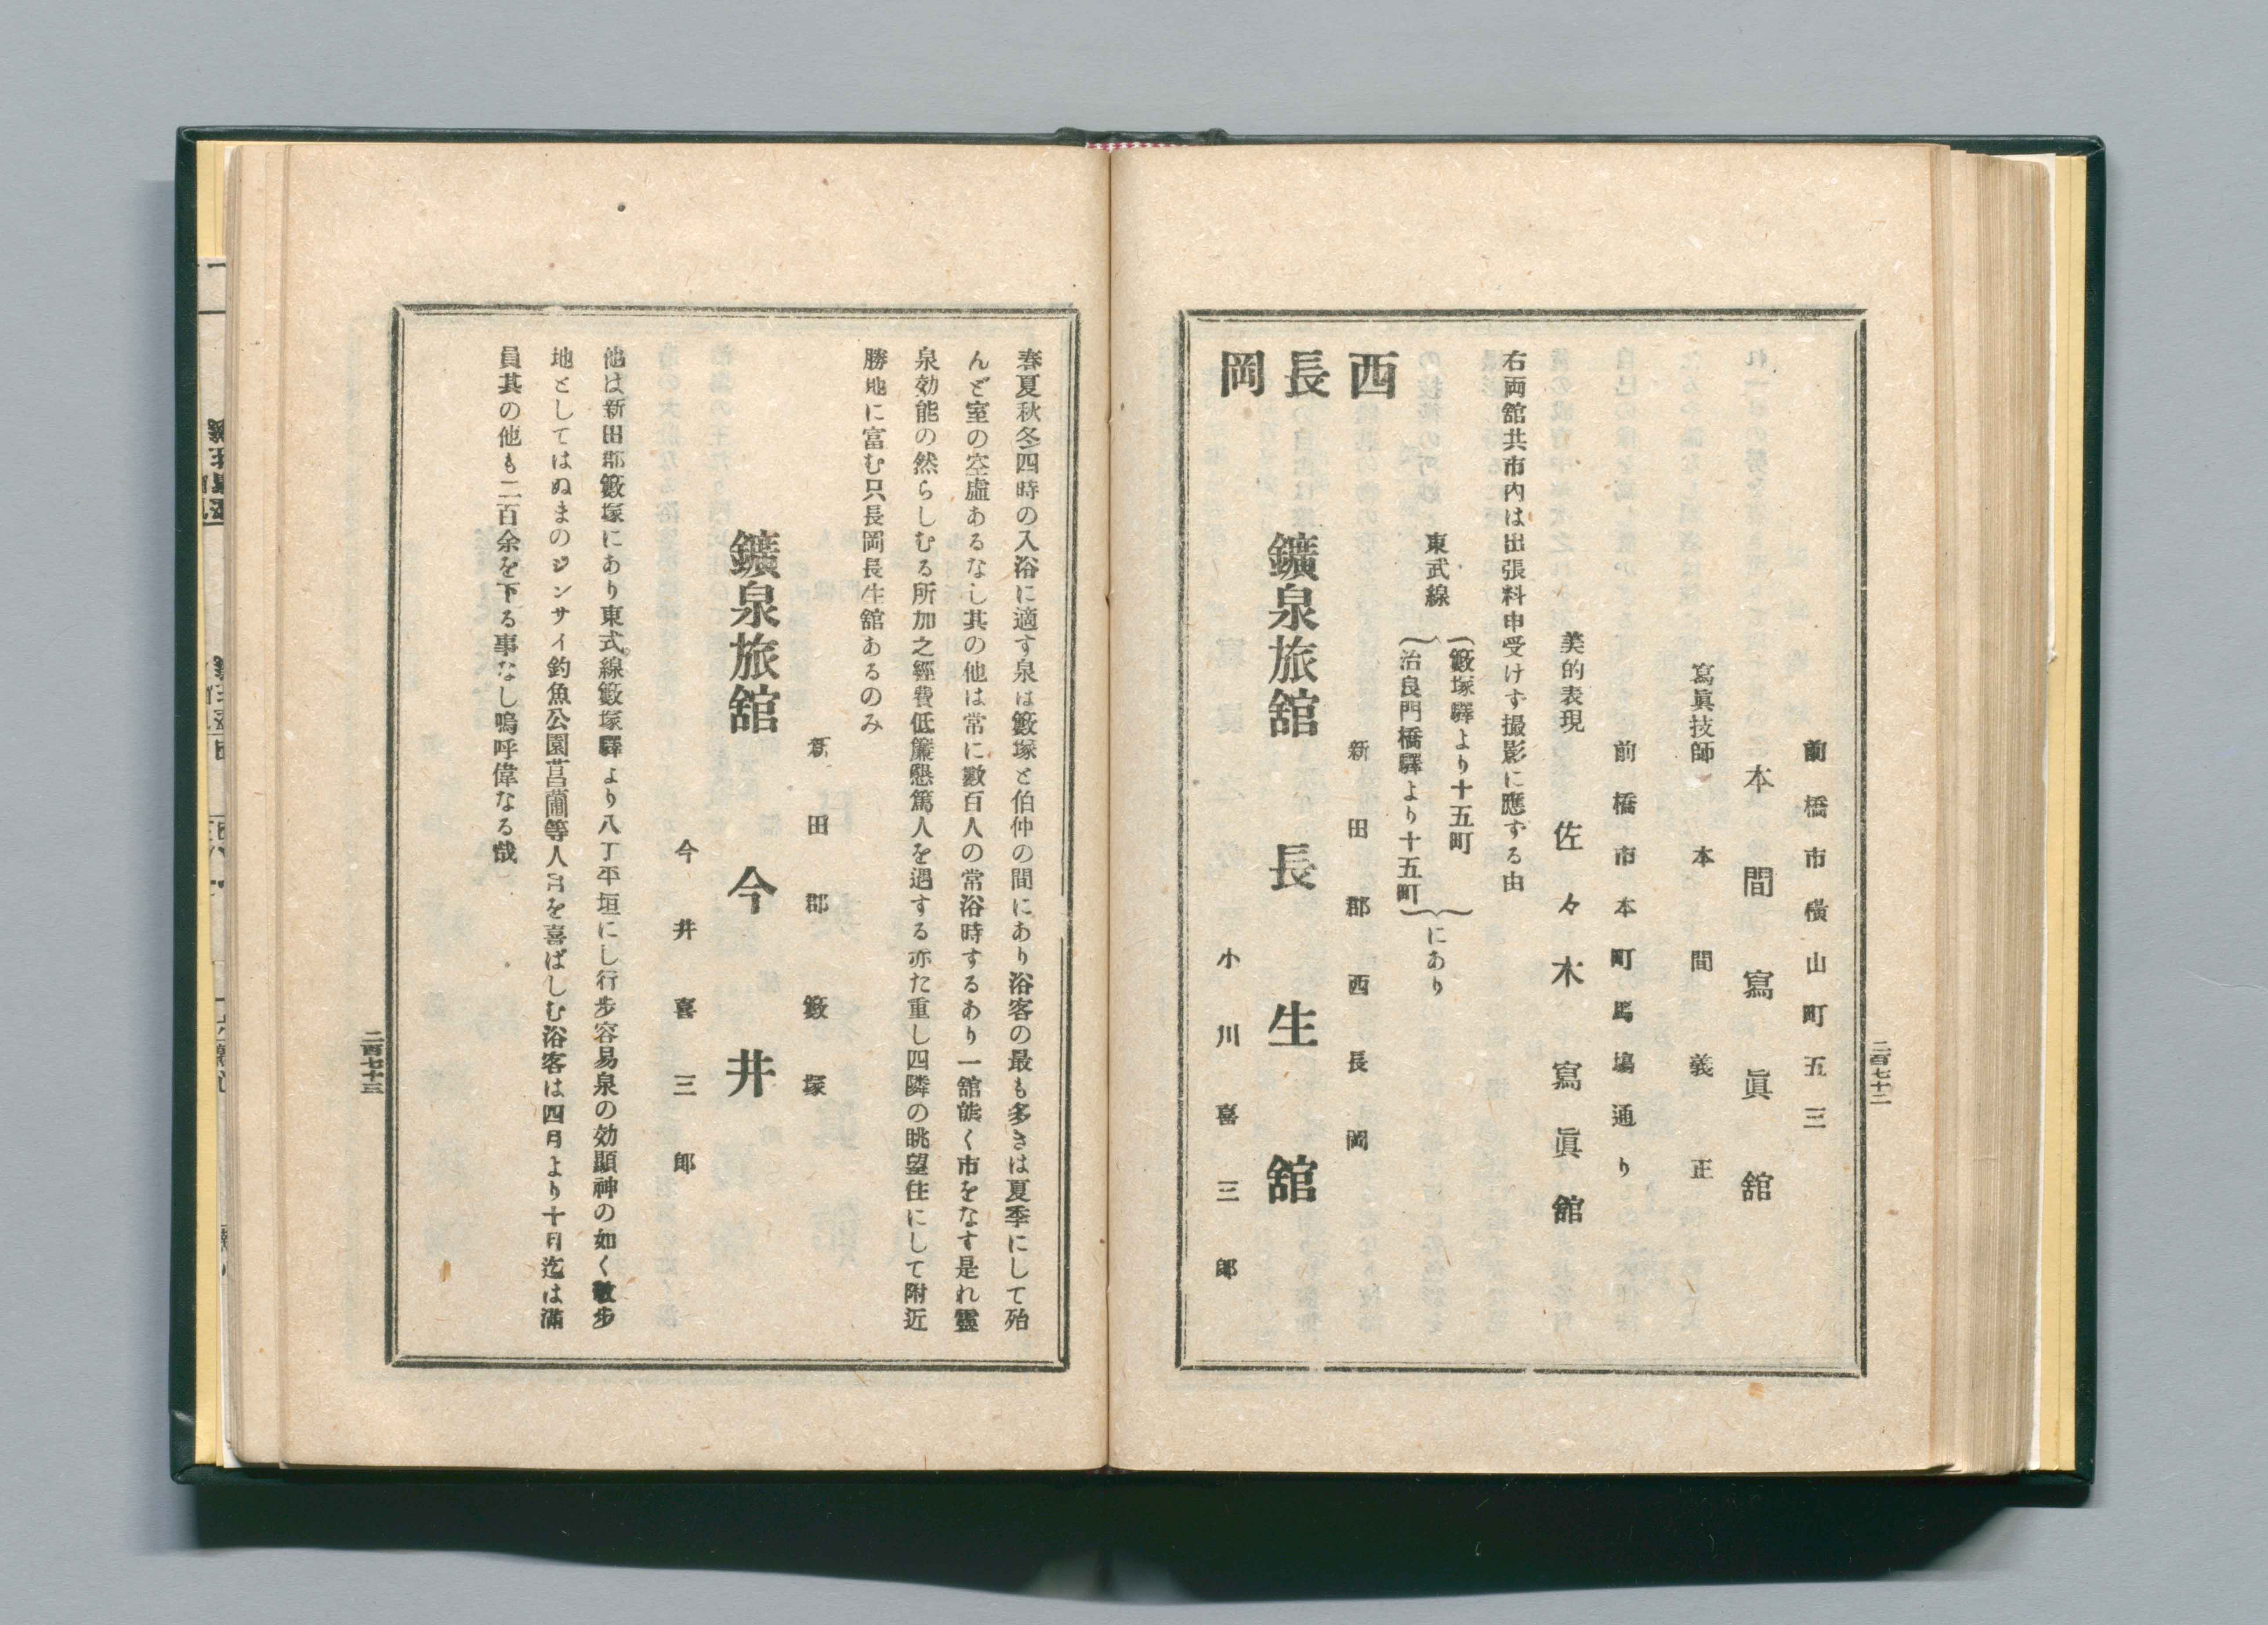 前橋市横山町五三
本間寫眞舘
寫眞技師　本間義正
前橋市本町馬塲通り
美的表現　佐々木寫眞舘
右両舘共市内は出張料申受けす撮影に應ずる由
東武線
藪塚驛より十五町
治良門橋驛より十五町
にあり
西長岡
新田郡西長岡
鑛泉旅舘　長生舘
小川喜三郎
二百七十二
春夏秋冬四時の入浴に適す泉は籔塚と伯仲の間にあり浴客の最も多きは夏季にして殆
んど室の空虚あるなし其の他は常に數百人の常浴時するあり一舘能く市をなす是れ靈
泉効能の然らしむる所加之經費低簾懇篤人を遇する亦た重し四隣の眺望佳にして附近
勝地に富む只長岡長生舘あるのみ
新田郡籔塚
鑛泉旅舘　今井
今井喜三郎
他は新田郡籔塚にあり東式線籔塚驛より八丁平垣にし行步容易泉の効顯神の如く散步
地としてはぬまのジンサイ釣魚公園菖蒲等人目を喜ばしむ浴客は四月より十月迄は滿
員其の他も二百余を下る事なし嗚呼偉なる哉
二百七十三